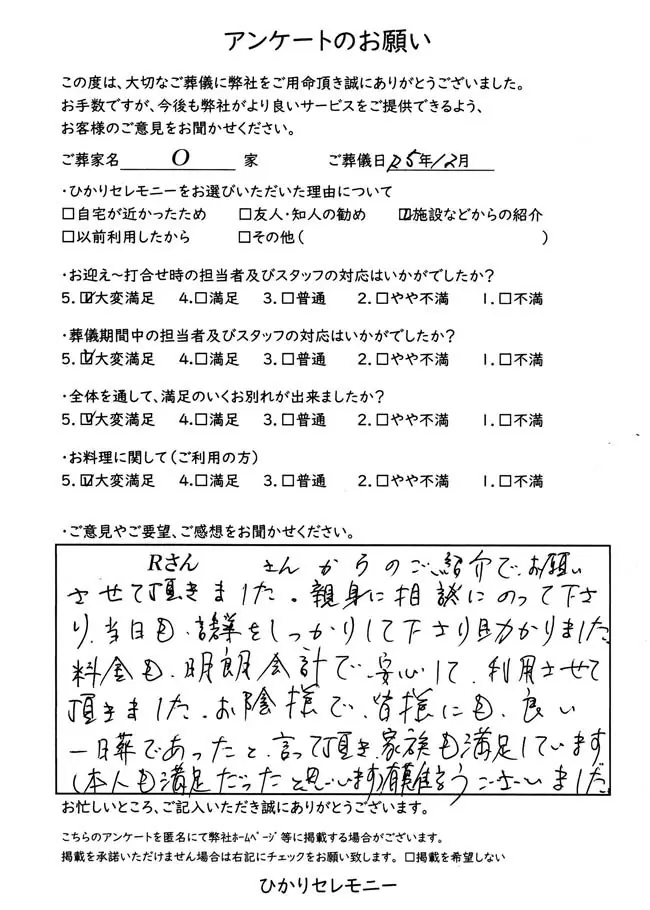 アンケートのお願い
この度は、大切なご葬儀に弊社をご用命頂き誠にありがとうございました。
お手数ですが、今後も弊社がより良いサービスをご提供できるよう、
お客様のご意見をお聞かせください。
ご葬家名 O 家 ご葬儀日 25年12月
・ひかりセレモニーをお選びいただいた理由について
□自宅が近かったため □友人・知人の勧め ☑施設などからの紹介
□以前利用したから □その他( )
・お迎え～打合せ時の担当者及びスタッフの対応はいかがでしたか?
5.☑大変満足 4.□満足 3.□普通 2.□やや不満 1.□不満
・葬儀期間中の担当者及びスタッフの対応はいかがでしたか?
5.☑大変満足 4.□満足 3.□普通 2.□やや不満 1.□不満
・全体を通して、満足のいくお別れが出来ましたか?
5.☑大変満足 4.□満足 3.□普通 2.□やや不満 1.□不満
・お料理に関して(ご利用の方)
5.☑大変満足 4.□満足 3.□普通 2.□やや不満 1.□不満
・ご意見やご要望、ご感想をお聞かせください。
Rさん さんからのご紹介で、お願い
させて頂きました。親身に相談にのって下さ
り、当日も、をしっかりして下さり助かりました
料金も、明朗会計で、安心して、利用させて
頂きました。お陰様で、皆様にも、良い
一日葬であったと、言って頂き、家族も満足しています
(本人も満足だったと思います)有難うございました
お忙しいところ、ご記入いただき誠にありがとうございます。
こちらのアンケートを匿名にて弊社ﾎｰﾑﾍﾟｰｼﾞ等に掲載する場合がございます。
掲載を承諾いただけません場合は右記にチェックをお願い致します。 □掲載を希望しない
ひかりセレモニー